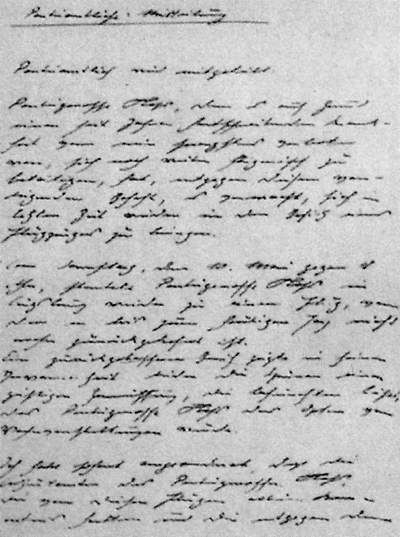 Parteiamtliche Mitteilung
Parteiamtlich wird mitgeteilt:
Parteigenosse Heß, dem es auf Grund
einer seit Jahren fortschreitenden Krank-
heit von mir strengstens verboten
war, sich noch weiter fliegerisch zu
betätigen, hat, entgegen diesem vor-
liegenden Befehl, es vermocht, sich in
letzter Zeit wieder in den Besitz eines
Flugzeuges zu bringen.
Am Sonnabend, den 10. Mai gegen 18
Uhr, startete Parteigenosse Heß in
Augsburg wieder zu einem Flug, von
dem er bis zum heutigen Tag nicht
mehr zurückgekehrt ist.
Ein zurückgelassener Brief zeigte in seiner
Verworrenheit leider die Spuren einer
geistigen Zerrüttung, die befürchten läßt,
daß Parteigenosse Heß das Opfer von
Wahnvorstellungen wurde.
Ich habe sofort angeordnet, daß die
Adjutanten des Parteigenossen Heß,
die von diesen Flügen allein Kennt-
hatten und die entgegen dem